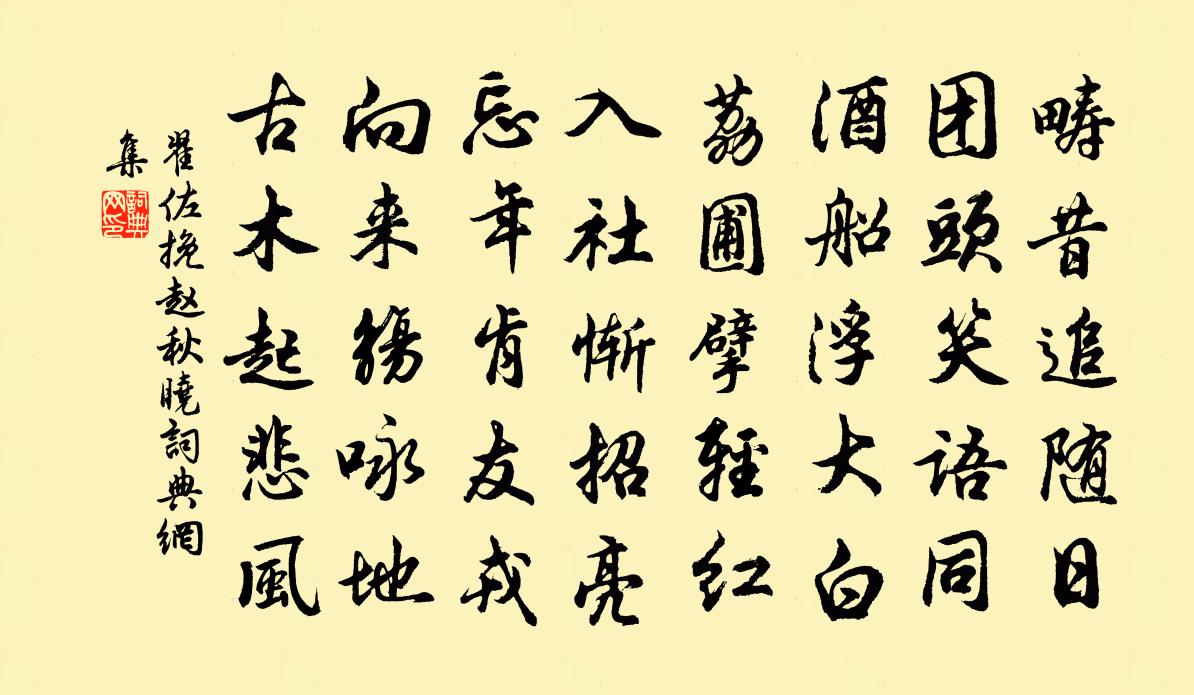 畴昔追随日
团頭笑語同
酒船浮大白
荔圃擘輕红
入社慚招亮
忘年肯友戎
向来觴咏地
古木起悲風
翟佐挽赵秋曉詞典網
集
詞典网印